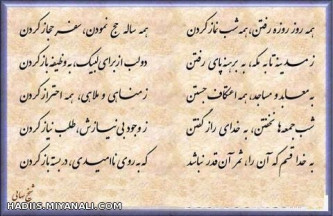 همه روز روزه رفتن، همه شب نماز کردن
همه ساله حج نمودن، سفر حجاز کردن
ز مدینه تا به مکه، به برهنه پای رفتن
دو لب از برای لبیک، به وظیفه باز کردن
به معابد و مساجد، همه اعتکاف جستن
ز مناهی و ملاهی، همه احتراز کردن
شب جمعه‌ها نخفتن، به خدای راز گفتن
ز وجود بی نیازش، طلب نیاز کردن
به خدا قسم که آن را، ثمر آن قدر نباشد
که به روی ناامیدی، در بسته باز کردن
شیخ بهایی
HADIIS.MIYANALI.COM